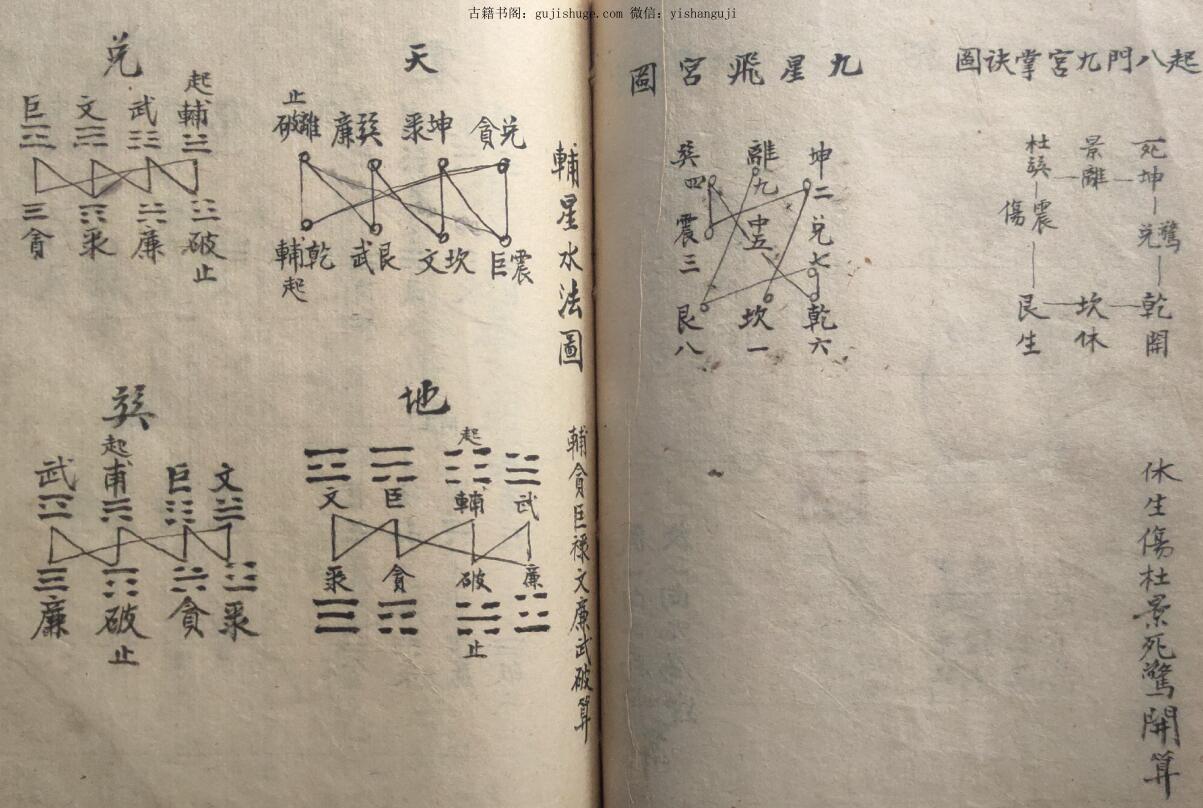 古籍书阁：gujishuge.com 微信：yishanguji
起八門九宮掌诀圖
死坤 景離 杜巽
驚兑 震傷
乾開 坎休 艮生
休生傷杜景死驚開算
九星飛宮圖
坤二 離九 巽四
兑七 中五 震三
乾六 坎一 艮八
輔星水法圖
輔貪巨祿文廉武破算
天
兑貪 坤 巽廉 離破止
震巨 坎文 艮武 乾輔起
地
起
武 輔 巨 文
廉 破 貪
止
兑
起輔 武 文 巨
破止 廉 貪
巽
文 巨 起 武
破止 貪 廉